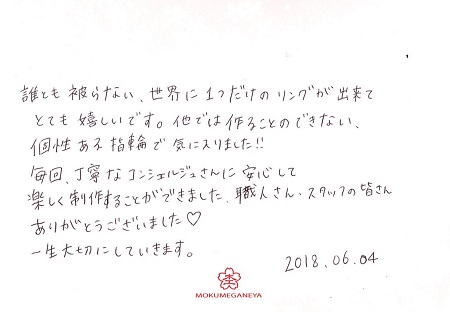 誰とも被らない、世界に1つだけのリングが出来て
とても嬉しいです。他では作ることのできない、
個性ある指輪で気に入りました!!
毎回、丁寧なコンシェルジュさんに安心して
楽しく制作することができました、職人さん、スタッフの皆さん
ありがとうございました♡
一生大切にしていきます。
2018.06.04
MOKUMEGANEYA